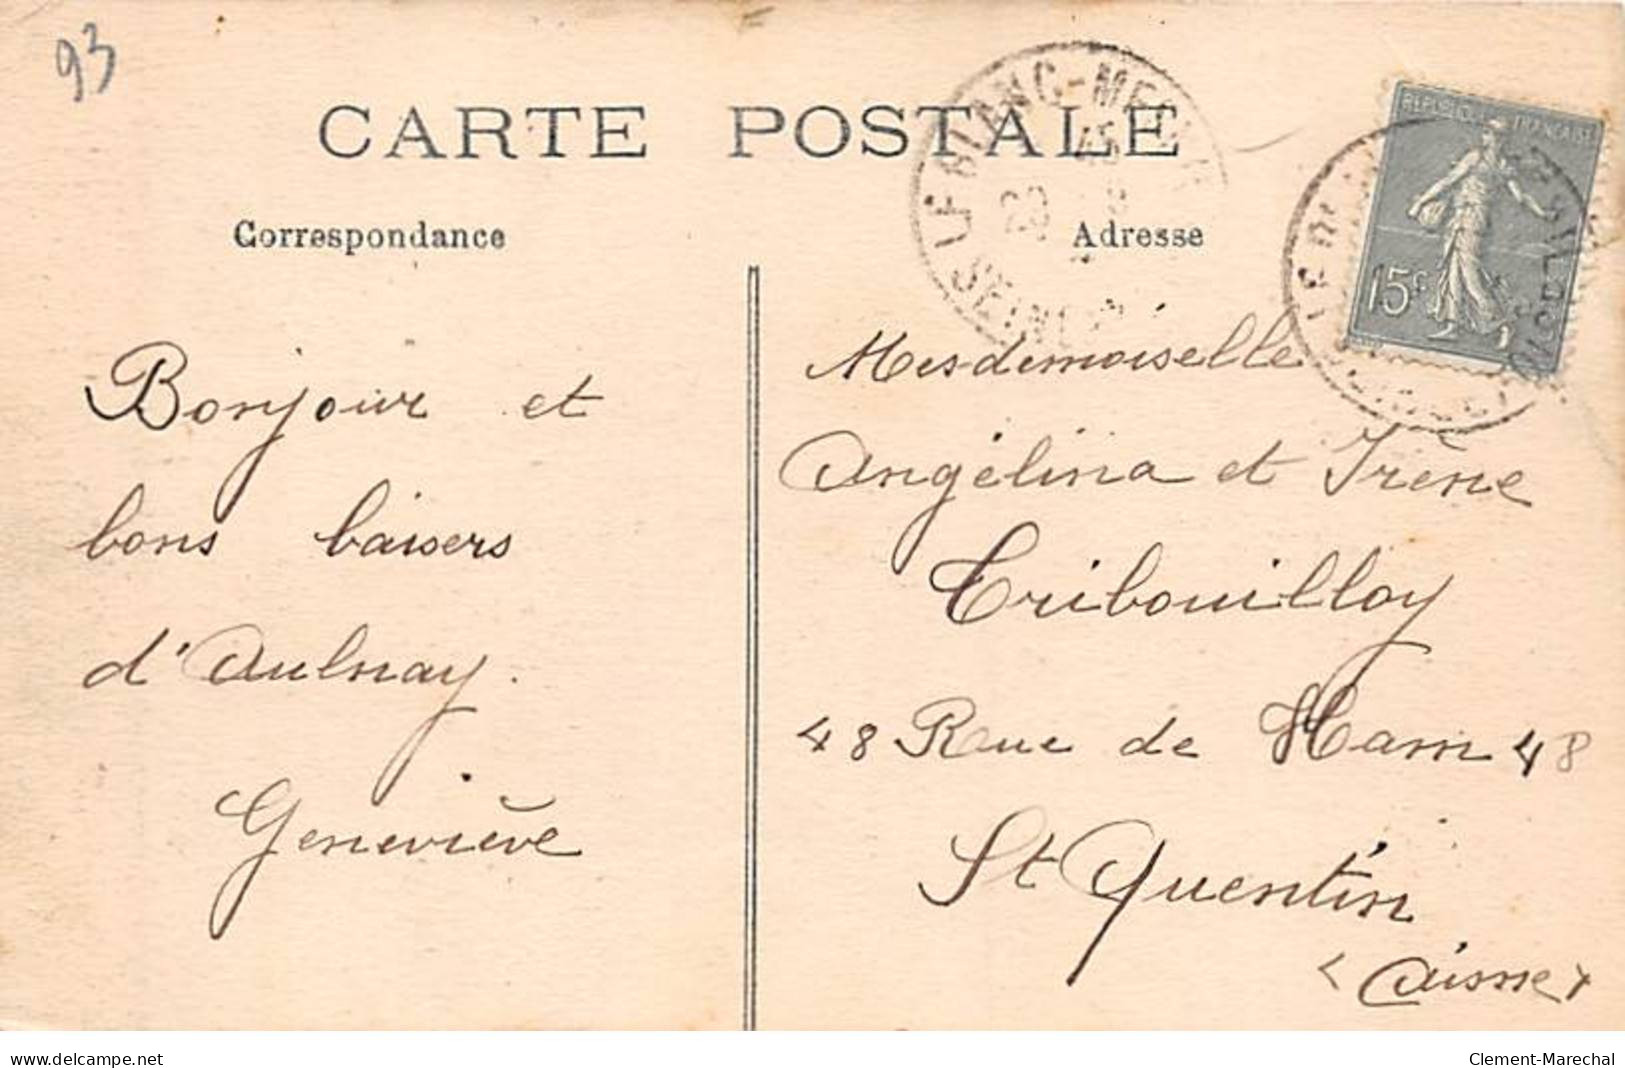 93
CARTE POSTALE
Correspondance
Adresse
LE BLANC-MESNIL
SEINE
REPUBLIQUE FRANÇAISE
15c
Bonjour et
bons baisers
d'Aulnay.
Geneviève
Mesdemoiselle
Angélina et Irène
Tribouilloy
48 Rue de Ham 48
St Quentin
(Aisne)
www.delcampe.net
Clement-Marechal